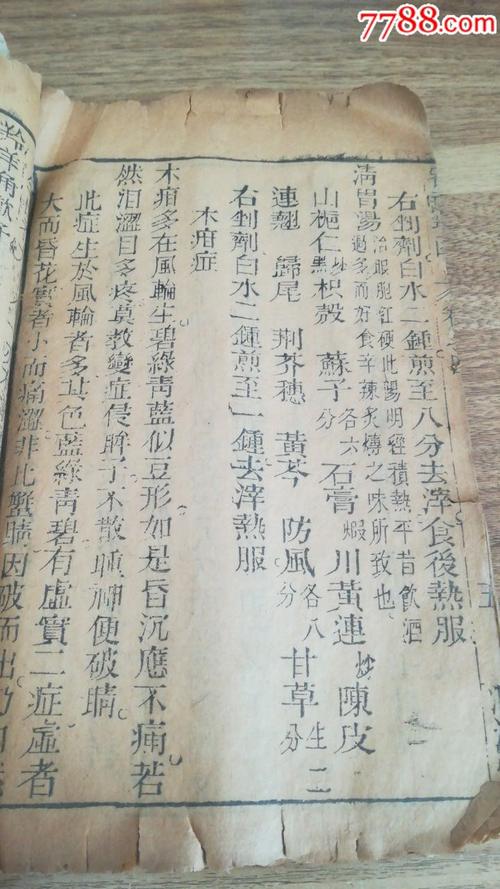 7788.com
右剉劑白水二鍾煎至八分去滓食後熱服
清胃湯 治眼胞紅硬此陽明經積熱平昔飲酒過多而好食辛辣炙煿之味所致也
山梔仁 炒黑 枳殼 蘇子 各六分 石膏 煅 川黃連 炒 陳皮
連翹 歸尾 荆芥穗 黃芩 防風 各八分 甘草 生二分
右剉劑白水二鍾煎至一鍾去滓熱服
木疳症
木疳多在風輪生碧綠青藍似豆形如是昏沉應不痛若
然泪澀目多疼莫教變症侵眸子不散瞳神便破睛
此症生於風輪者多其色藍綠青碧有虛實二症虛者
大而昏花實者小而痛澀非比蟹睛因破而出乃
羚羊角散